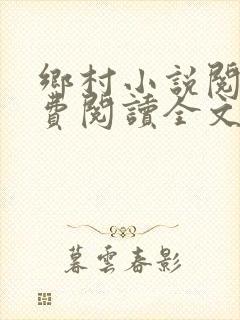 鄉村小說閱
費閱讀全文
暮雲春影